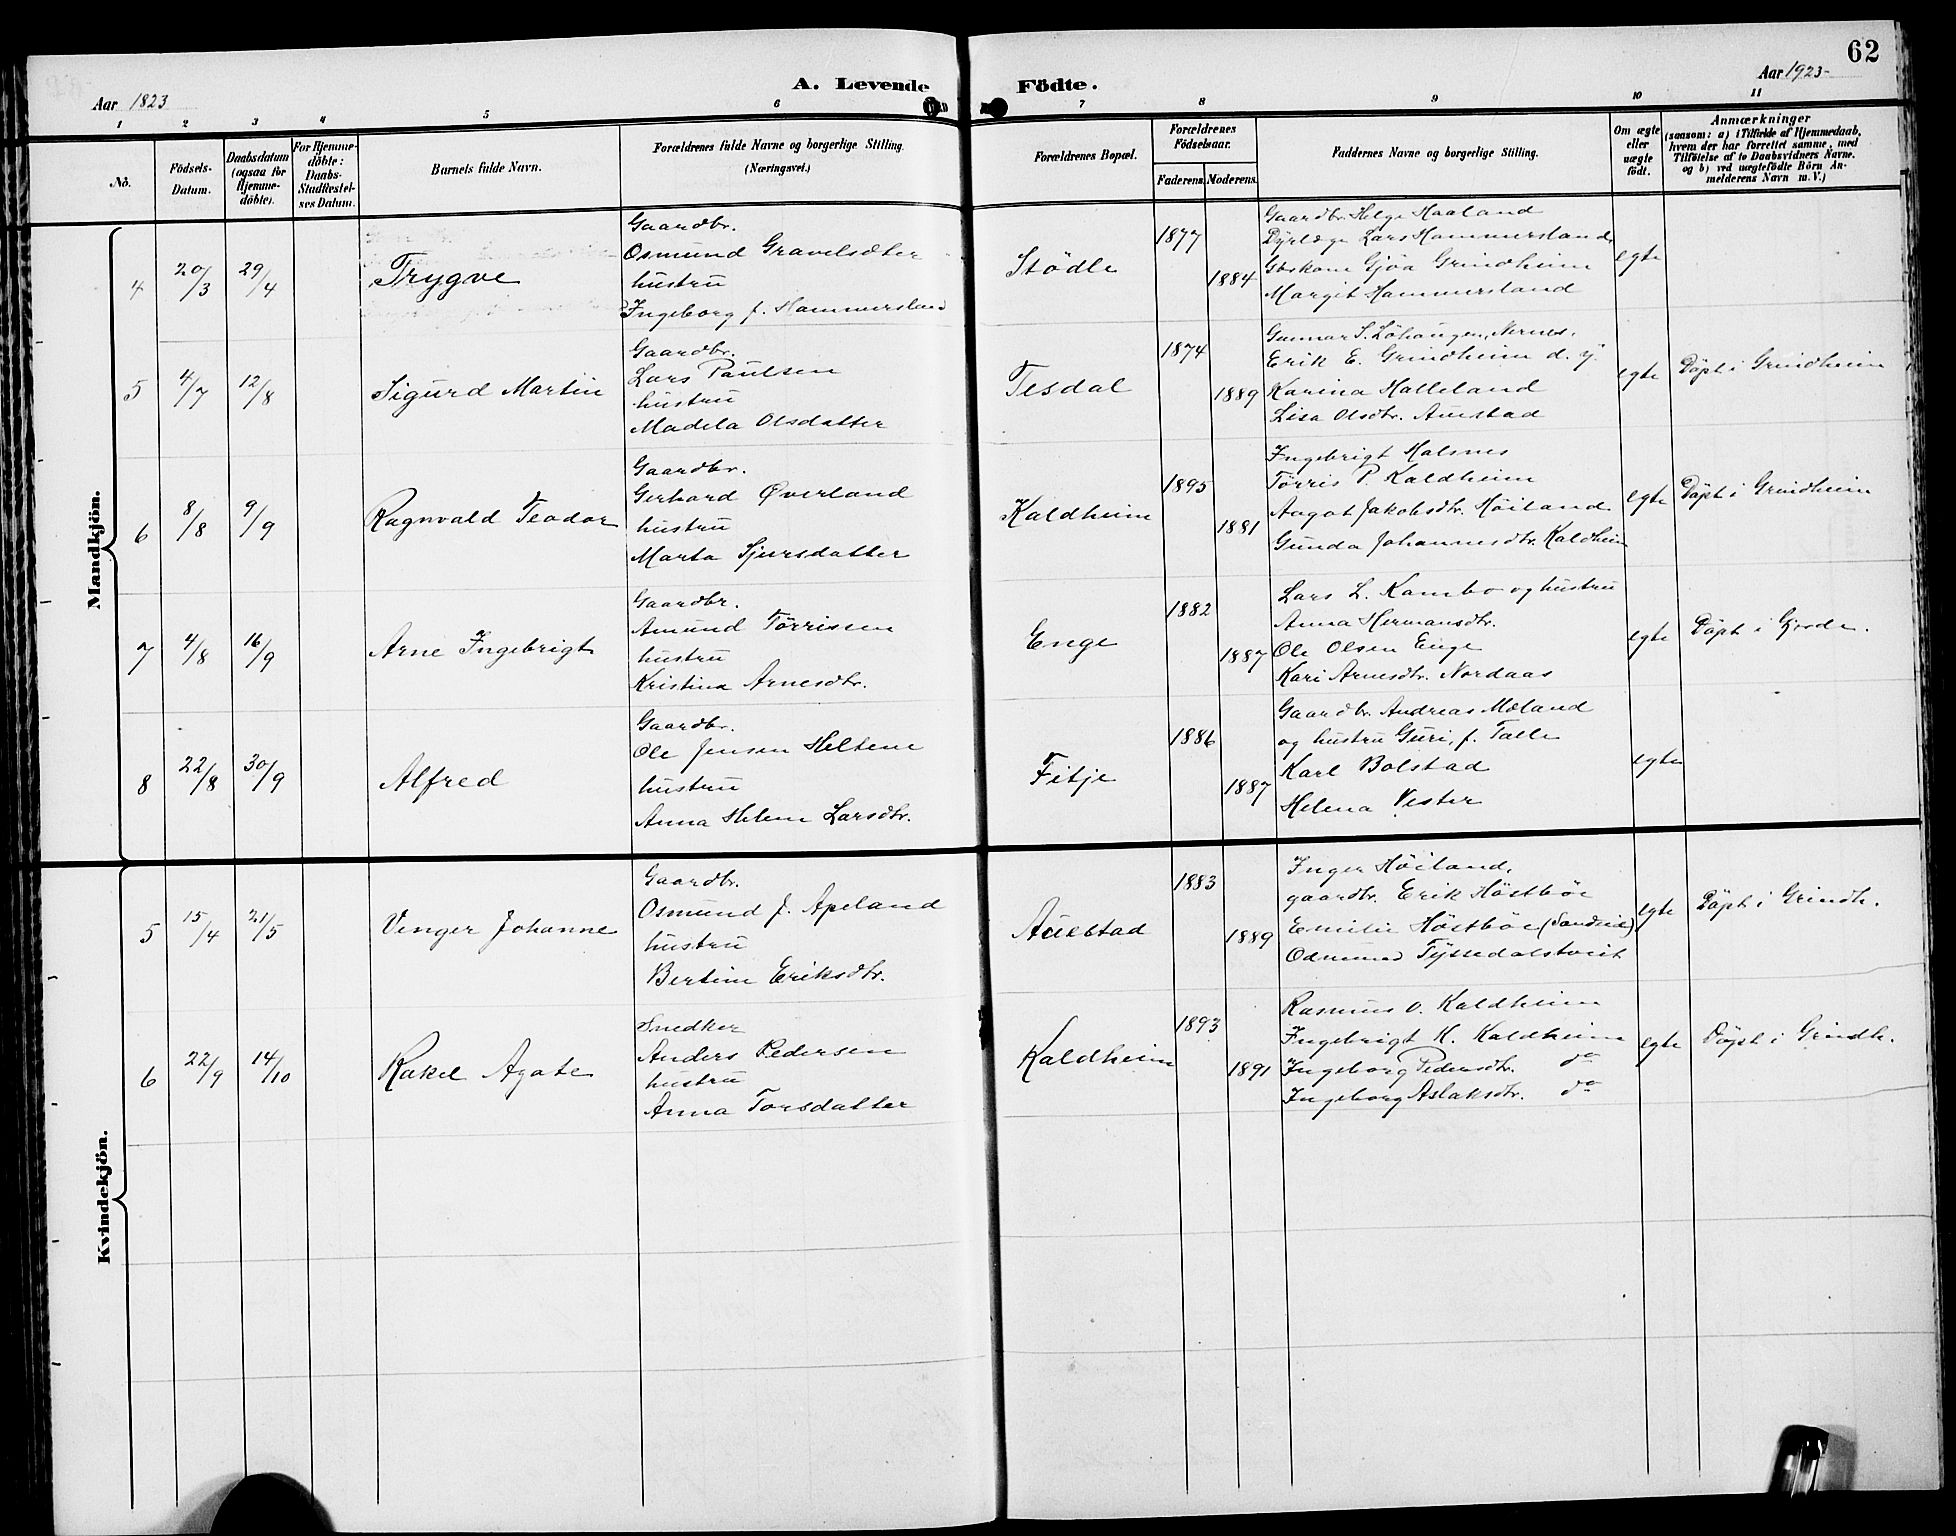 62
A. Levende Födte.
Aar 1823
Aar 1923-
1 2 3 4 5 6 7 8 9 10 11
No.
Födsels-Datum.
Daabsdatum (ogsaa for Hjemme-döbte).
For Hjemme-döbte: Daabs-Stadfæstel-ses Datum.
Barnets fulde Navn.
Forældrenes fulde Navne og borgerlige Stilling.
(Næringsvei.)
Forældrenes Bopæl.
Forældrenes Födselsaar.
Faderens. Moderens.
Faddernes Navne og borgerlige Stilling.
Om ægte eller uægte födt.
Anmærkninger
(saasom: a) i Tilfælde af Hjemmedaab, hvem der har forrettet samme, med Tilföielse af to Daabsvidners Navne. og b) ved uægtefödte Börn An-melderens Navn m. V.)
Mandkjön.
4 20/3 29/4 Trygve
Gaardbr.
Osmund Gravelsæter
hustru
Ingeborg f. Hammersland
Stödle 1877 1884
Gaardbr. Helge Haaland
Dyrlæge Lars Hammersland
Gbskone Gjøa Grindheim
Margit Hammersland
egte
5 4/7 12/8 Sigurd Martin
Gaardbr.
Lars Paulsen
hustru
Madela Olsdatter
Tesdal 1874 1889
Gunnar S. Löhaugen, Nernes.
Erik E. Grindheim d. y.
Karina Halleland
Lisa Olsdtr. Auestad
egte Döpt i Grindheim
6 8/8 9/9 Ragnvald Teodor
Gaardbr.
Gerhard Øverland
hustru
Marta Sjursdatter
Kaldheim 1895 1881
Ingebrigt Halsnes
Törris P. Kaldheim
Aagot Jakobsdtr. Höiland
Gunda Johannesdtr. Kaldheim
egte Döpt i Grindheim
7 4/8 16/9 Arne Ingebrigt
Gaardbr.
Amund Törrissen
hustru
Kristina Arnesdtr.
Enge 1882 1887
Lars L. Kambo og hustru
Anna Hermansdtr.
Ole Olsen Enge
Kari Arnesdtr. Nordaas
egte Döpt i Gjerde.
8 22/8 30/9 Alfred
Gaardbr.
Ole Jensen Heltene
hustru
Anna Helene Larsdtr.
Fitje 1886 1887
Gaardbr. Andreas Mæland
og hustru Guri, f. Talle
Karl Bolstad
Helena Vester
egte
Kvindekjön.
5 15/4 21/5 Venger Johanne
Gaardbr.
Osmund J. Apeland
hustru
Bertine Eriksdtr.
Auestad 1883 1889
Inger Höiland,
gaardbr. Erik Höstböe
Emilie Höstböe (Sandeid)
Odmund Tyssedalstveit
egte Döpt i Grindh.
6 22/9 14/10 Rakel Agate
Snedker
Anders Pedersen
hustru
Anna Torsdatter
Kaldheim 1893 1891
Rasmus O. Kaldheim
Ingebrigt K. Kaldheim
Ingeborg Pedersdtr. do
Ingeborg Aslaksdtr. do
egte Döpt i Grindh.